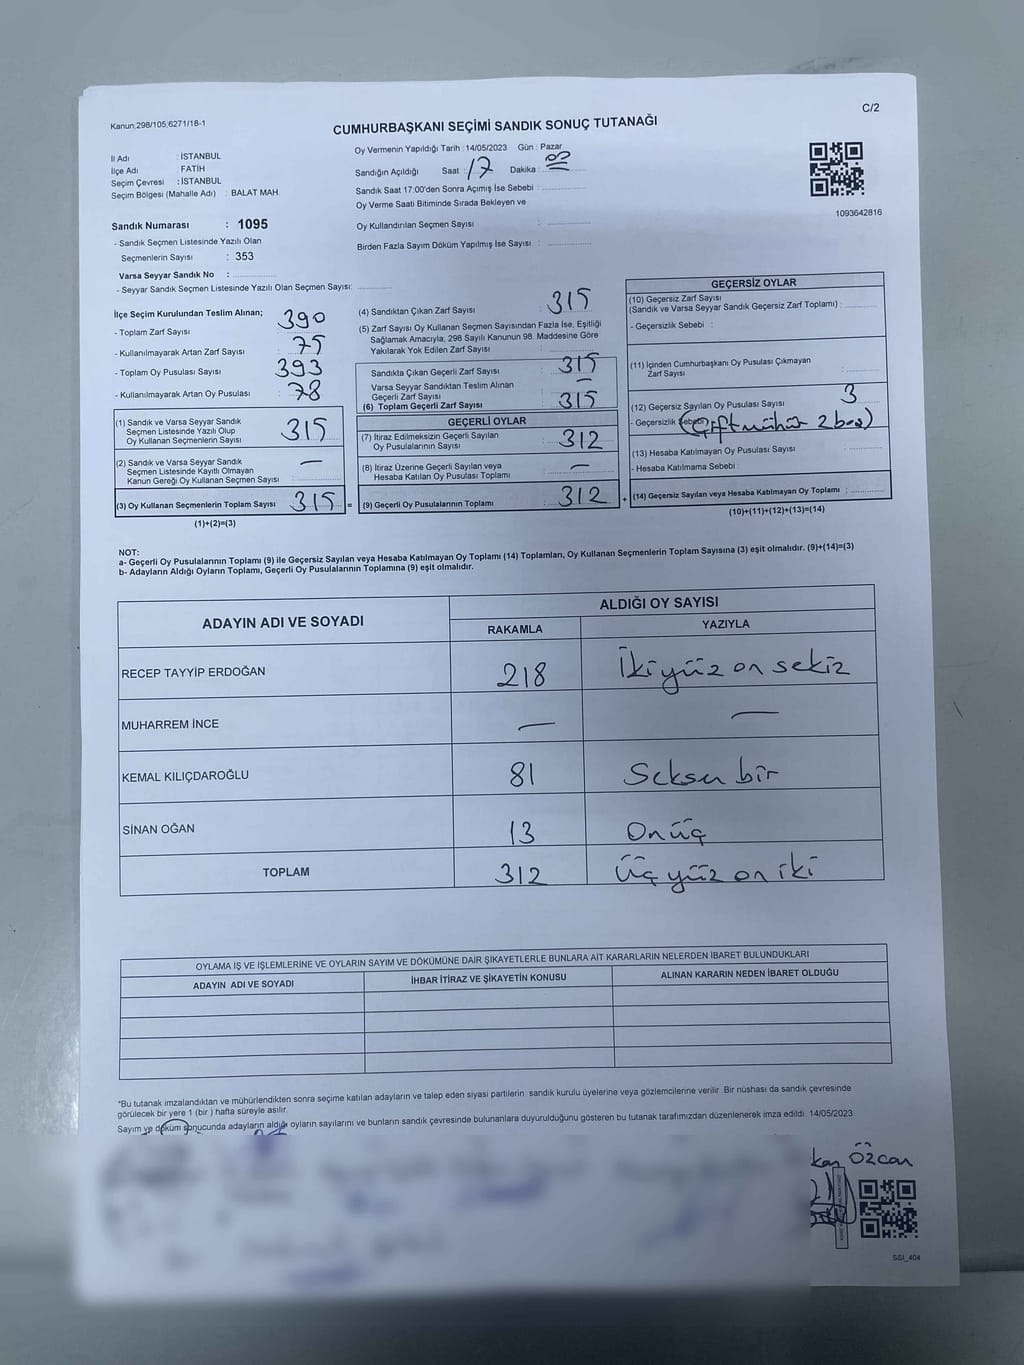 C/2
Kanun:298/105,6271/18-1
CUMHURBAŞKANI SEÇİMİ SANDIK SONUÇ TUTANAĞI
İl Adı : İSTANBUL
İlçe Adı : FATİH
Seçim Çevresi : İSTANBUL
Seçim Bölgesi (Mahalle Adı) : BALAT MAH.
Oy Vermenin Yapıldığı Tarih : 14/05/2023 Gün : Pazar
Sandığın Açıldığı Saat : 17 Dakika : 00
Sandık Saat 17:00'den Sonra Açımış İse Sebebi :
Oy Verme Saati Bitiminde Sırada Bekleyen ve
Oy Kullandırılan Seçmen Sayısı :
Birden Fazla Sayım Döküm Yapılmış İse Sayısı :
1093642816
Sandık Numarası : 1095
- Sandık Seçmen Listesinde Yazılı Olan
Seçmenlerin Sayısı : 353
Varsa Seyyar Sandık No :
- Seyyar Sandık Seçmen Listesinde Yazılı Olan Seçmen Sayısı:
İlçe Seçim Kurulundan Teslim Alınan;
- Toplam Zarf Sayısı 390
- Kullanılmayarak Artan Zarf Sayısı 75
- Toplam Oy Pusulası Sayısı 393
- Kullanılmayarak Artan Oy Pusulası 78
(1) Sandık ve Varsa Seyyar Sandık
Seçmen Listesinde Yazılı Olup
Oy Kullanan Seçmenlerin Sayısı 315
(2) Sandık ve Varsa Seyyar Sandık
Seçmen Listesinde Kayıtlı Olmayan
Kanun Gereği Oy Kullanan Seçmen Sayısı : —
(3) Oy Kullanan Seçmenlerin Toplam Sayısı 315 =
(1)+(2)=(3)
(4) Sandıktan Çıkan Zarf Sayısı : 315
(5) Zarf Sayısı Oy Kullanan Seçmen Sayısından Fazla İse, Eşitliği
Sağlamak Amacıyla, 298 Sayılı Kanunun 98. Maddesine Göre
Yakılarak Yok Edilen Zarf Sayısı :
Sandıkta Çıkan Geçerli Zarf Sayısı : 315
Varsa Seyyar Sandıktan Teslim Alınan
Geçerli Zarf Sayısı : —
(6) Toplam Geçerli Zarf Sayısı : 315
GEÇERLİ OYLAR
(7) İtiraz Edilmeksizin Geçerli Sayılan
Oy Pusulalarının Sayısı : 312
(8) İtiraz Üzerine Geçerli Sayılan veya
Hesaba Katılan Oy Pusulası Toplamı : —
(9) Geçerli Oy Pusulalarının Toplamı : 312 +
GEÇERSİZ OYLAR
(10) Geçersiz Zarf Sayısı
(Sandık ve Varsa Seyyar Sandık Geçersiz Zarf Toplamı) :
- Geçersizlik Sebebi :
(11) İçinden Cumhurbaşkanı Oy Pusulası Çıkmayan
Zarf Sayısı :
(12) Geçersiz Sayılan Oy Pusulası Sayısı : 3
- Geçersizlik Sebebi (Çift mühür 2 boş)
(13) Hesaba Katılmayan Oy Pusulası Sayısı :
- Hesaba Katılmama Sebebi :
(14) Geçersiz Sayılan veya Hesaba Katılmayan Oy Toplamı :
(10)+(11)+(12)+(13)=(14)
NOT:
a- Geçerli Oy Pusulalarının Toplamı (9) ile Geçersiz Sayılan veya Hesaba Katılmayan Oy Toplamı (14) Toplamları, Oy Kullanan Seçmenlerin Toplam Sayısına (3) eşit olmalıdır. (9)+(14)=(3)
b- Adayların Aldığı Oyların Toplamı, Geçerli Oy Pusulalarının Toplamına (9) eşit olmalıdır.
ADAYIN ADI VE SOYADI
ALDIĞI OY SAYISI
RAKAMLA YAZIYLA
RECEP TAYYİP ERDOĞAN 218 İkiyüz on sekiz
MUHARREM İNCE — —
KEMAL KILIÇDAROĞLU 81 Seksen bir
SİNAN OĞAN 13 Onüç
TOPLAM 312 Üçyüz on iki
OYLAMA İŞ VE İŞLEMLERİNE VE OYLARIN SAYIM VE DÖKÜMÜNE DAİR ŞİKAYETLERLE BUNLARA AİT KARARLARIN NELERDEN İBARET BULUNDUKLARI
ADAYIN ADI VE SOYADI İHBAR İTİRAZ VE ŞİKAYETİN KONUSU ALINAN KARARIN NEDEN İBARET OLDUĞU
*Bu tutanak imzalandıktan ve mühürlendikten sonra seçime katılan adayların ve talep eden siyasi partilerin sandık kurulu üyelerine veya gözlemcilerine verilir. Bir nüshası da sandık çevresinde
görülecek bir yere 1 (bir) hafta süreyle asılır.
Sayım ve döküm sonucunda adayların aldığı oyların sayılarını ve bunların sandık çevresinde bulunanlara duyurulduğunu gösteren bu tutanak tarafımızdan düzenlenerek imza edildi. 14/05/2023
Özcan
SSI_404